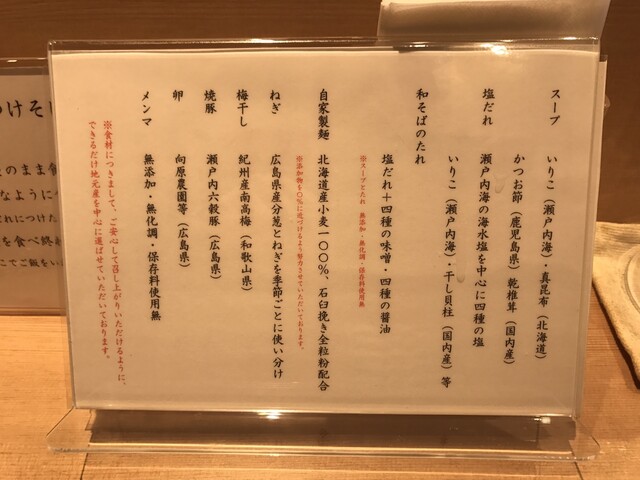 スープ　いりこ（瀬戸内海）・真昆布（北海道）
かつお節（鹿児島県）乾椎茸（国内産）
塩だれ　瀬戸内海の海水塩を中心に四種の塩
いりこ（瀬戸内海）・干し貝柱（国内産）等
和そばのたれ
塩だれ＋四種の味噌・四種の醤油
※スープとたれ　無添加・無化調・保存料使用無
自家製麺　北海道産小麦一〇〇％、石臼挽き全粒粉配合
※添加物を〇％に近づけるよう努力させていただいております。
ねぎ　広島県産分葱とねぎを季節ごとに使い分け
梅干し　紀州産南高梅（和歌山県）
焼豚　瀬戸内六穀豚（広島県）
卵　向原農園等（広島県）
メンマ　無添加・無化調・保存料使用無
※食材につきまして、ご安心して召し上がりいただけるように、
できるだけ地元産を中心に選ばせていただいております。
つけそ
のまま食
なように
れにつけた
を食べ終
こでご飯をい